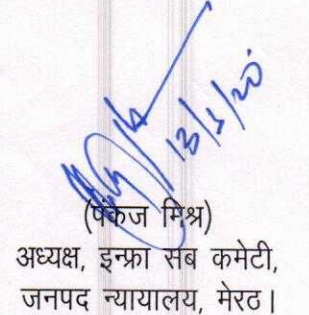 13/1/20
(पंकज मिश्र)
अध्यक्ष, इन्फ्रा सब कमेटी,
जनपद न्यायालय, मेरठ।